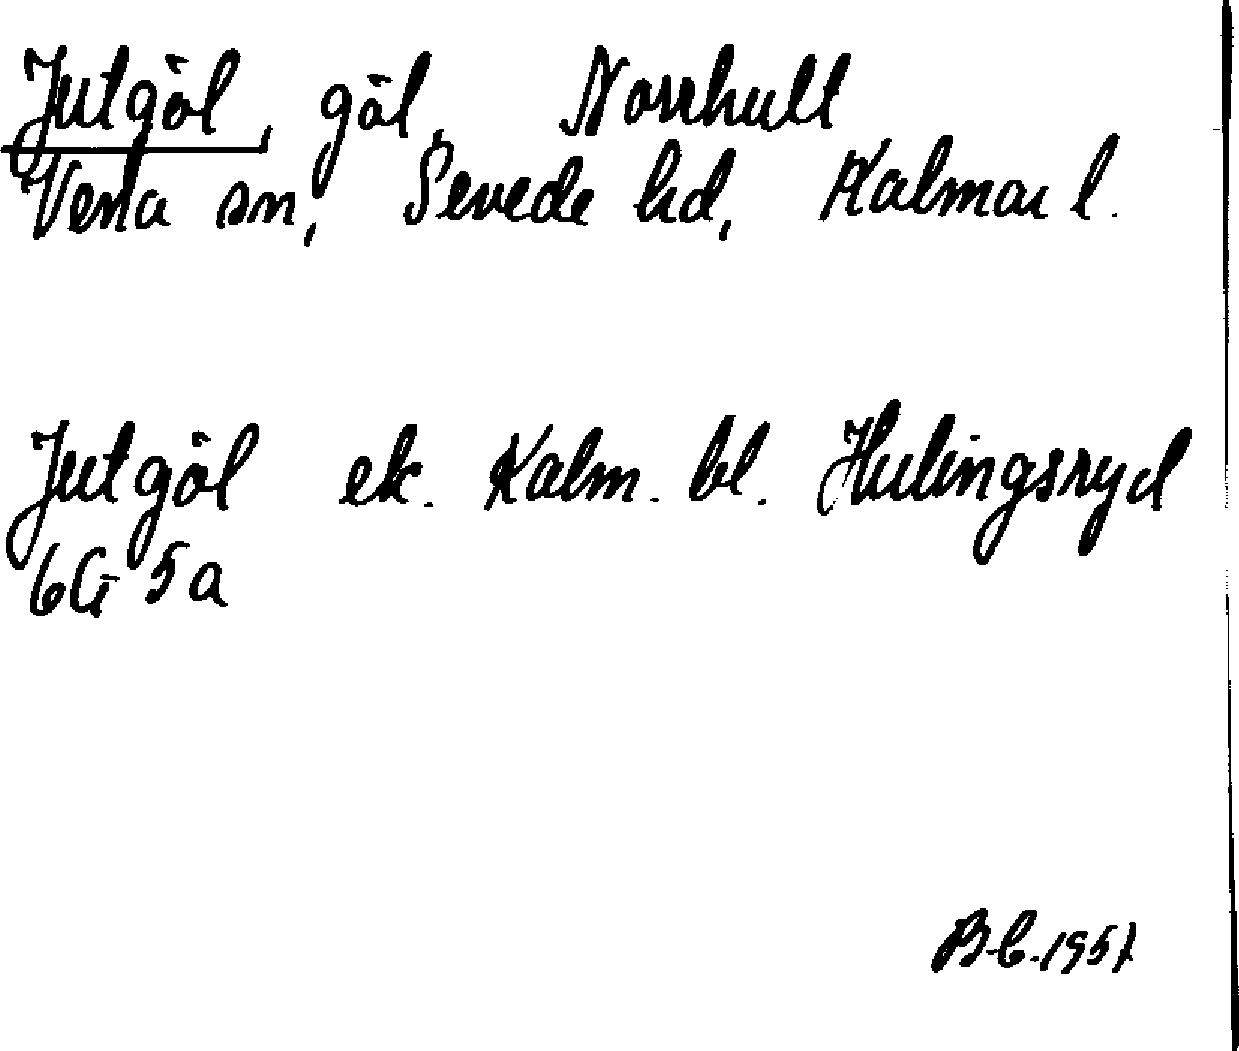 Jutgöl, göl, Norrhult
Vena sn, Sevede hd, Kalmar l.
Jutgöl ek. Kalm. bl. Hulingsryd
6G 5a
B-C. 1951